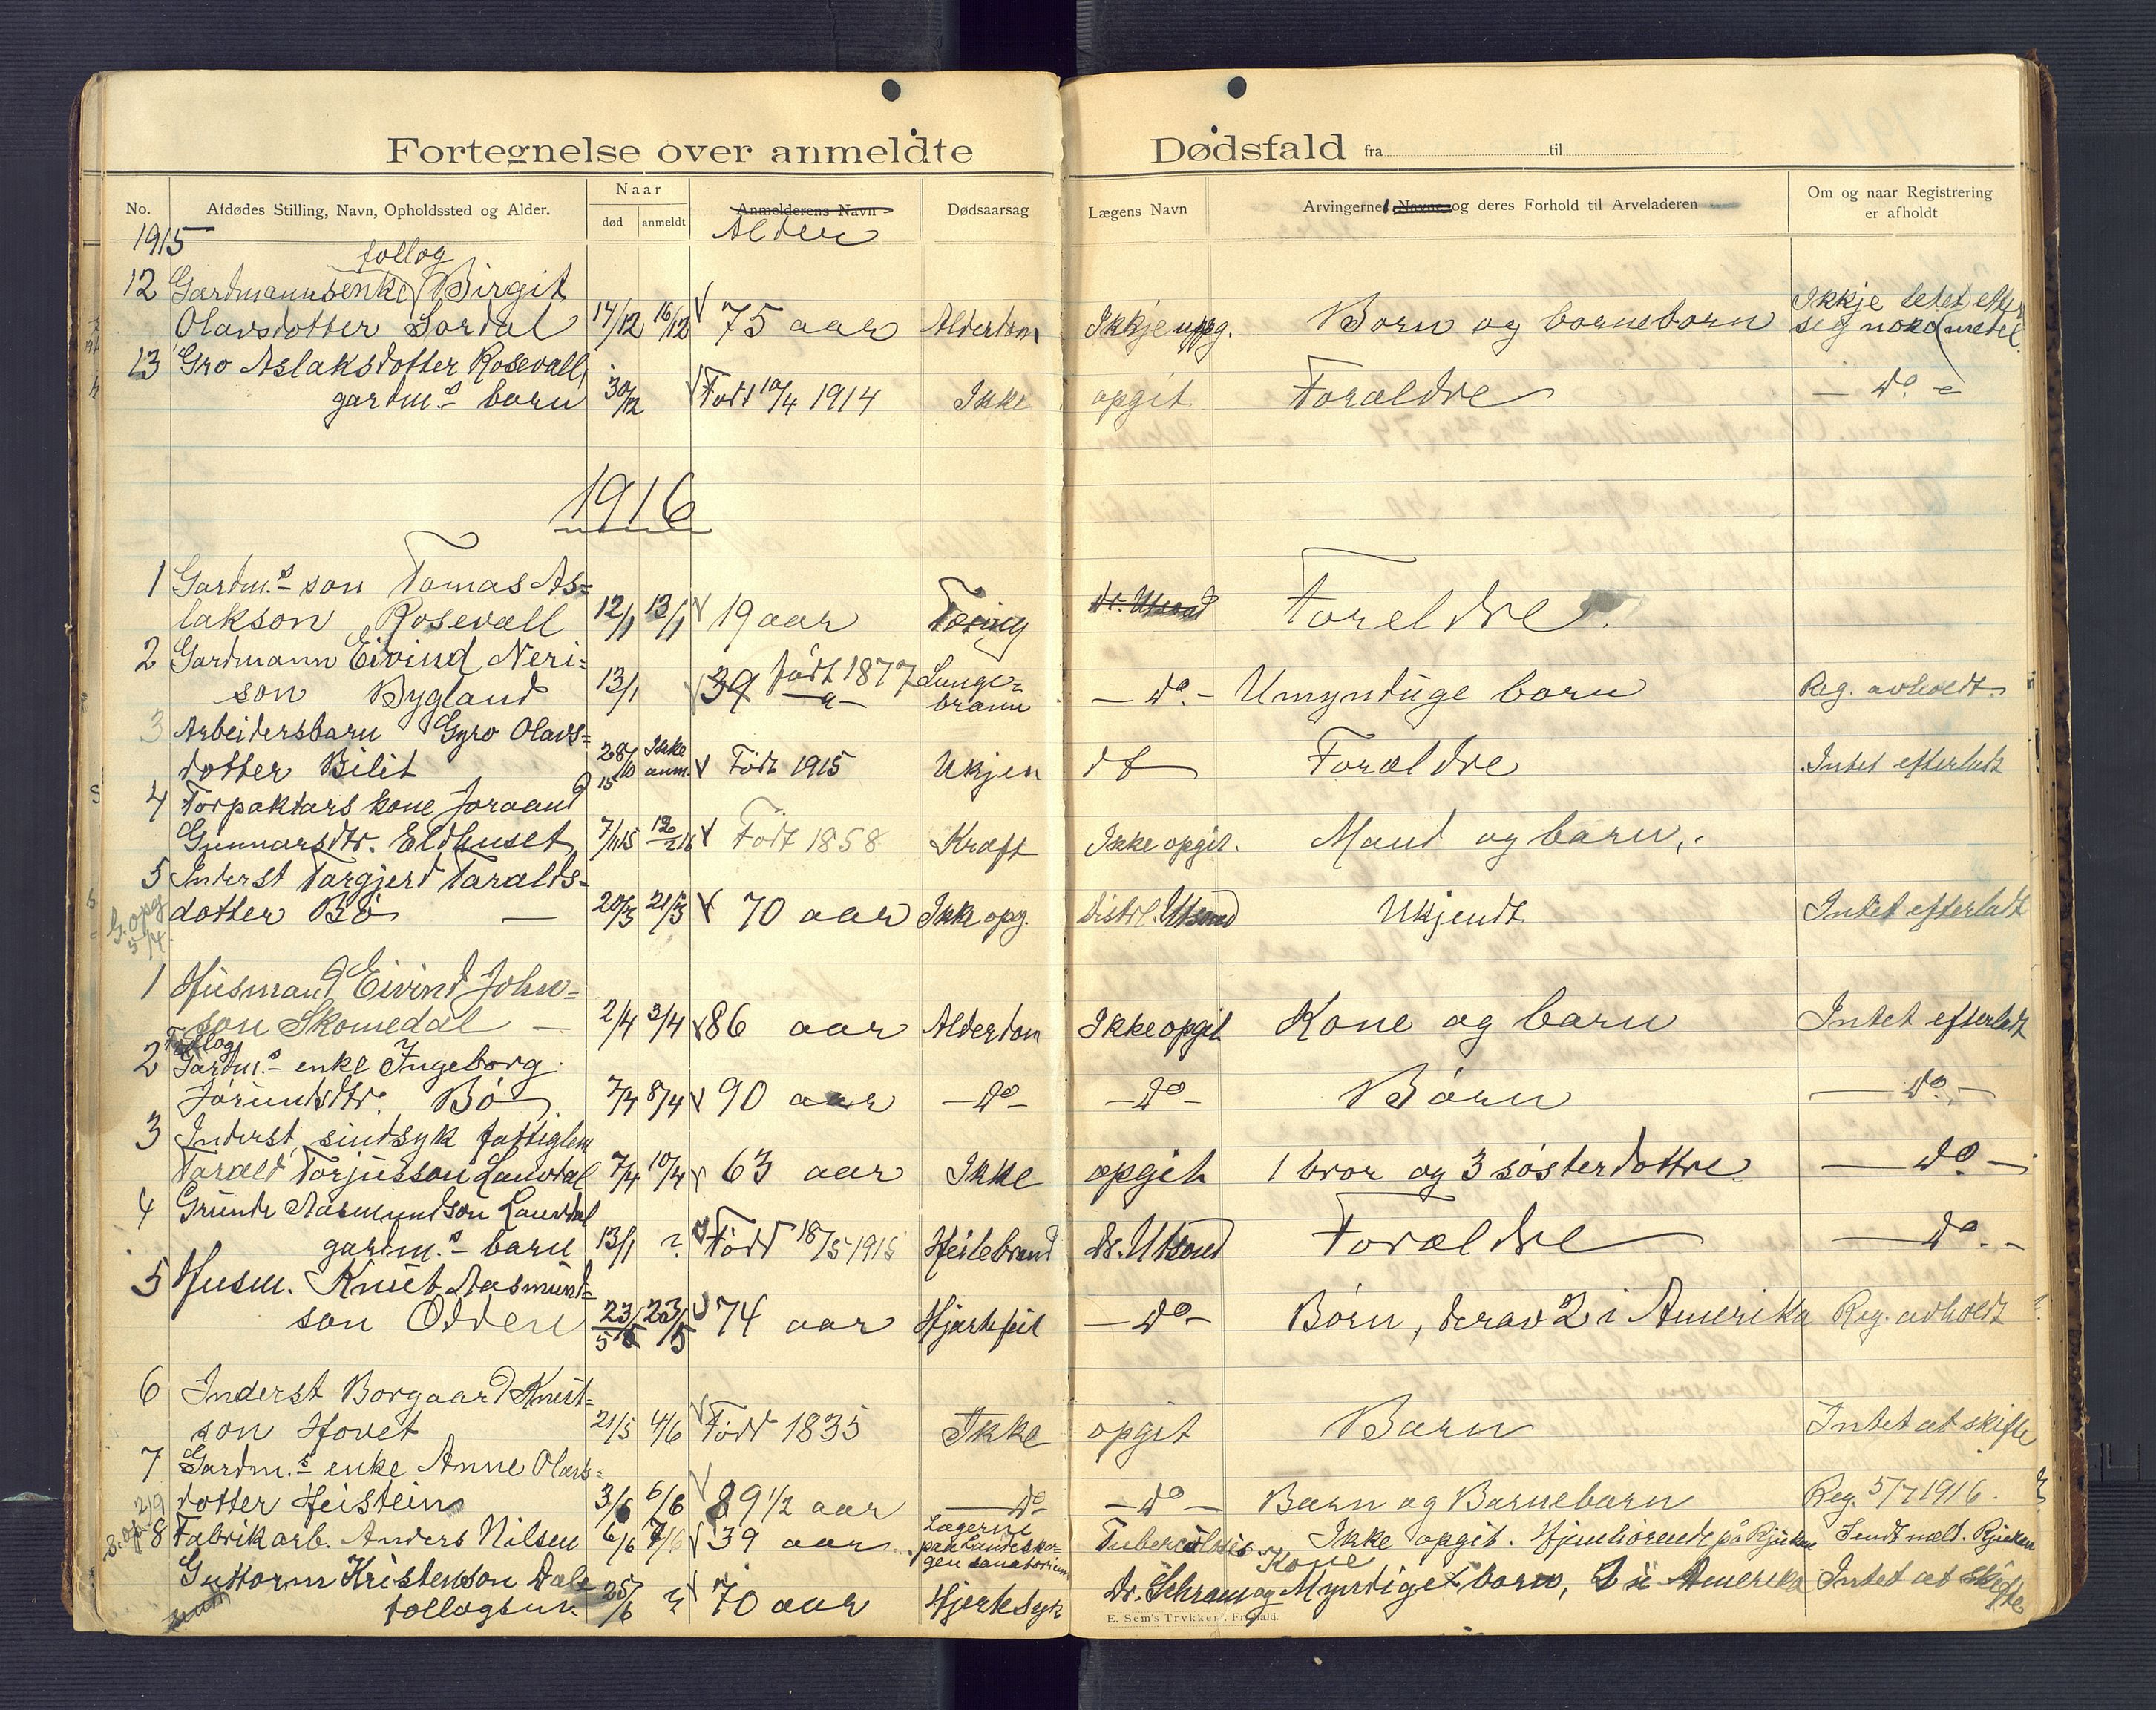 Fortegnelse over anmeldte Dødsfald fra til
No. Afdødes Stilling, Navn, Opholdssted og Alder. Naar død anmeldt Anmelderens Navn Dødsaarsag Lægens Navn Arvingernes Navne og deres Forhold til Arveladeren Om og naar Registrering er afholdt
1915 Alder
follog
12 Gardmannsenke Birgit
Olavsdotter Lordal 14/12 16/12 75 aar Alderdom Ikkje uppg. Born og borneborn Ikkje letet efter seg noko
13 Gro Aslaksdotter Rosevall,
gardm.s born 30/12 Født 10/4 1914 Ikke opgit Foræld­re - do -
1916
1 Gardm.s son Tomas As=
lakson Rosevall 12/1 13/1 19 aar Tæring dr. Utsond Foreldre.
2 Gardmann Eivind Neri=
son Bygland 13/1 39 født 1877 Lunge=
brann - do - Umyndige born Reg. avholdt
3 Arbeidersbarn Gyro Olavs=
dotter Bilit 28/10 15 Ikke anm. Født 1915 Ukjen do Forældre Intet efterladt
4 Forpaktars kone Joraand
Gunnarsdtr. Eldhuset 7/1 15 12/2 16 Født 1858 Kræft Ikke opgit. Mand og barn.
5 Inderst Targjerd Taralds-
dotter Bø 20/3 21/3 70 aar Ikke opg. distrl. Utsond Ukjendt Intet efterladt
G. opg 5/4.
1 Husmand Eivind John=
son Skomedal 2/4 3/4 86 aar Alderdom Ikke opgit Kone og barn Intet efterladt
Follog
2 Gardm.s enke Ingeborg
Jørundsdtr. Bø 7/4 8/4 90 aar - do - - do - Børn - do -
3 Inderst, sindsyk fattiglem
Tarald Torjusson Lauvdal 7/4 10/4 63 aar Ikke opgit 1 bror og 3 søsterdøttre - do -
4 Grunde Aasmundson Lauvdal
gardm.s barn 13/1 ? Født 18/5 1915 dr. Utsond Forældre - do -
5 Husm. Knut Aasmund=
son Odden 23/5 23/5 74 aar Hjertefeil - do - Børn, derav 2 i Amerika Reg. avholdt
6 Inderst Borgaar Knut=
son Hovet 21/5 4/6 Født 1835 Ikke opgit Barn Intet at skifte
7 Gardm.s enke Anne Olavs=
dotter Heistein 3/6 6/6 89 1/2 aar - do - - do - Barn og Barnebarn Reg. 5/7 1916.
8 Fabrikarb. Anders Nilsen 6/6 7/6 39 aar Lægerne paa Landeskogen sanatorium Tuberculosis Ikke opgit. Hjemhørende på Rjukan Sendt mæld. Rjukan
Guttorm Kristenson Dale
follogsm. 25/6 ? 70 aar Hjertesyk dr. Schram Kone og Myndige born, 2 i Amerika Intet at skifte
E. Sem's Trykkeri. Fr.hald.